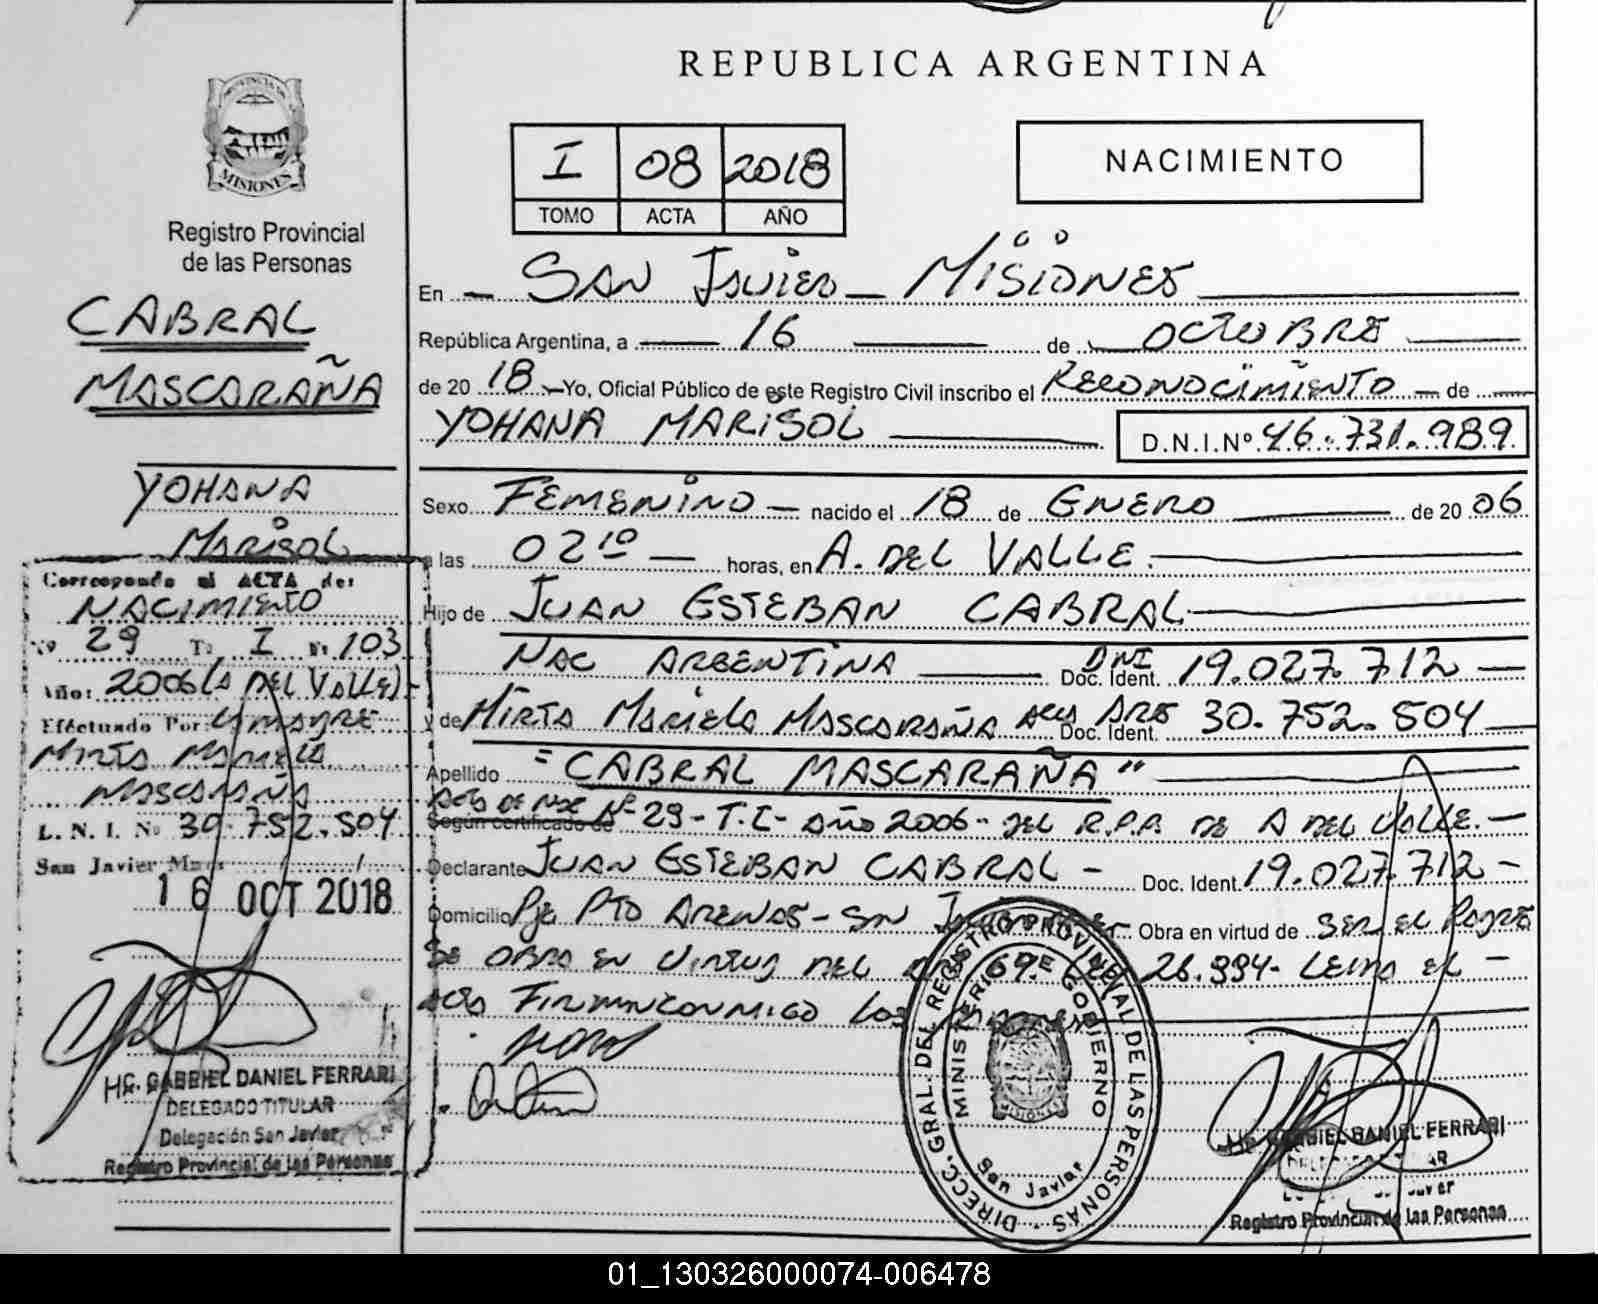 REPUBLICA ARGENTINA
PROVINCIA DE
MISIONES
Registro Provincial
de las Personas
CABRAL
MASCARAÑA
YOHANA
MARISOL
Corresponde al ACTA de:
NACIMIENTO
Nº 29 Tº I Fº 103
Año: 2006 (A DEL VALLE)
Efectuado Por:
MIRTA MARIELA
MASCARAÑA
L. N. I. Nº 30.752.504
San Javier Mnes / /
16 OCT 2018
GABRIEL DANIEL FERRARI
DELEGADO TITULAR
Delegación San Javier
Registro Provincial de las Personas
I 08 2018
TOMO ACTA AÑO
NACIMIENTO
En SAN JAVIER - MISIONES
República Argentina, a 16 de OCTUBRE
de 20 18 Yo, Oficial Público de este Registro Civil inscribo el RECONOCIMIENTO de
YOHANA MARISOL D.N.I.Nº 46.731.989
Sexo FEMENINO nacido el 18 de ENERO de 20 06
a las 02 10 horas, en A. DEL VALLE.
Hijo de JUAN ESTEBAN CABRAL
NAC ARGENTINA DNI Doc. Ident. 19.027.712
y de MIRTA MARIELA MASCARAÑA ARG Doc. Ident. 30.752.504
Apellido "CABRAL MASCARAÑA"
ACTA DE NAC Nº 29 - T. I - AÑO 2006 - DEL R.P.P. DE A DEL VALLE.
Según certificado de
Declarante JUAN ESTEBAN CABRAL - Doc. Ident. 19.027.712
Domicilio Pje PTO ARENAS - SAN Obra en virtud de SER EL PADRE
SE OBRA EN VIRTUD DEL 26.994. LEIDA EL
ACTA FIRMAN CONMIGO LOS
DIRECC. GRAL. DEL REGISTRO PROVINCIAL DE LAS PERSONAS
MINISTERIO DE GOBIERNO
MISIONES
San Javier
GABRIEL DANIEL FERRARI
Registro Provincial de las Personas
01_130326000074-006478